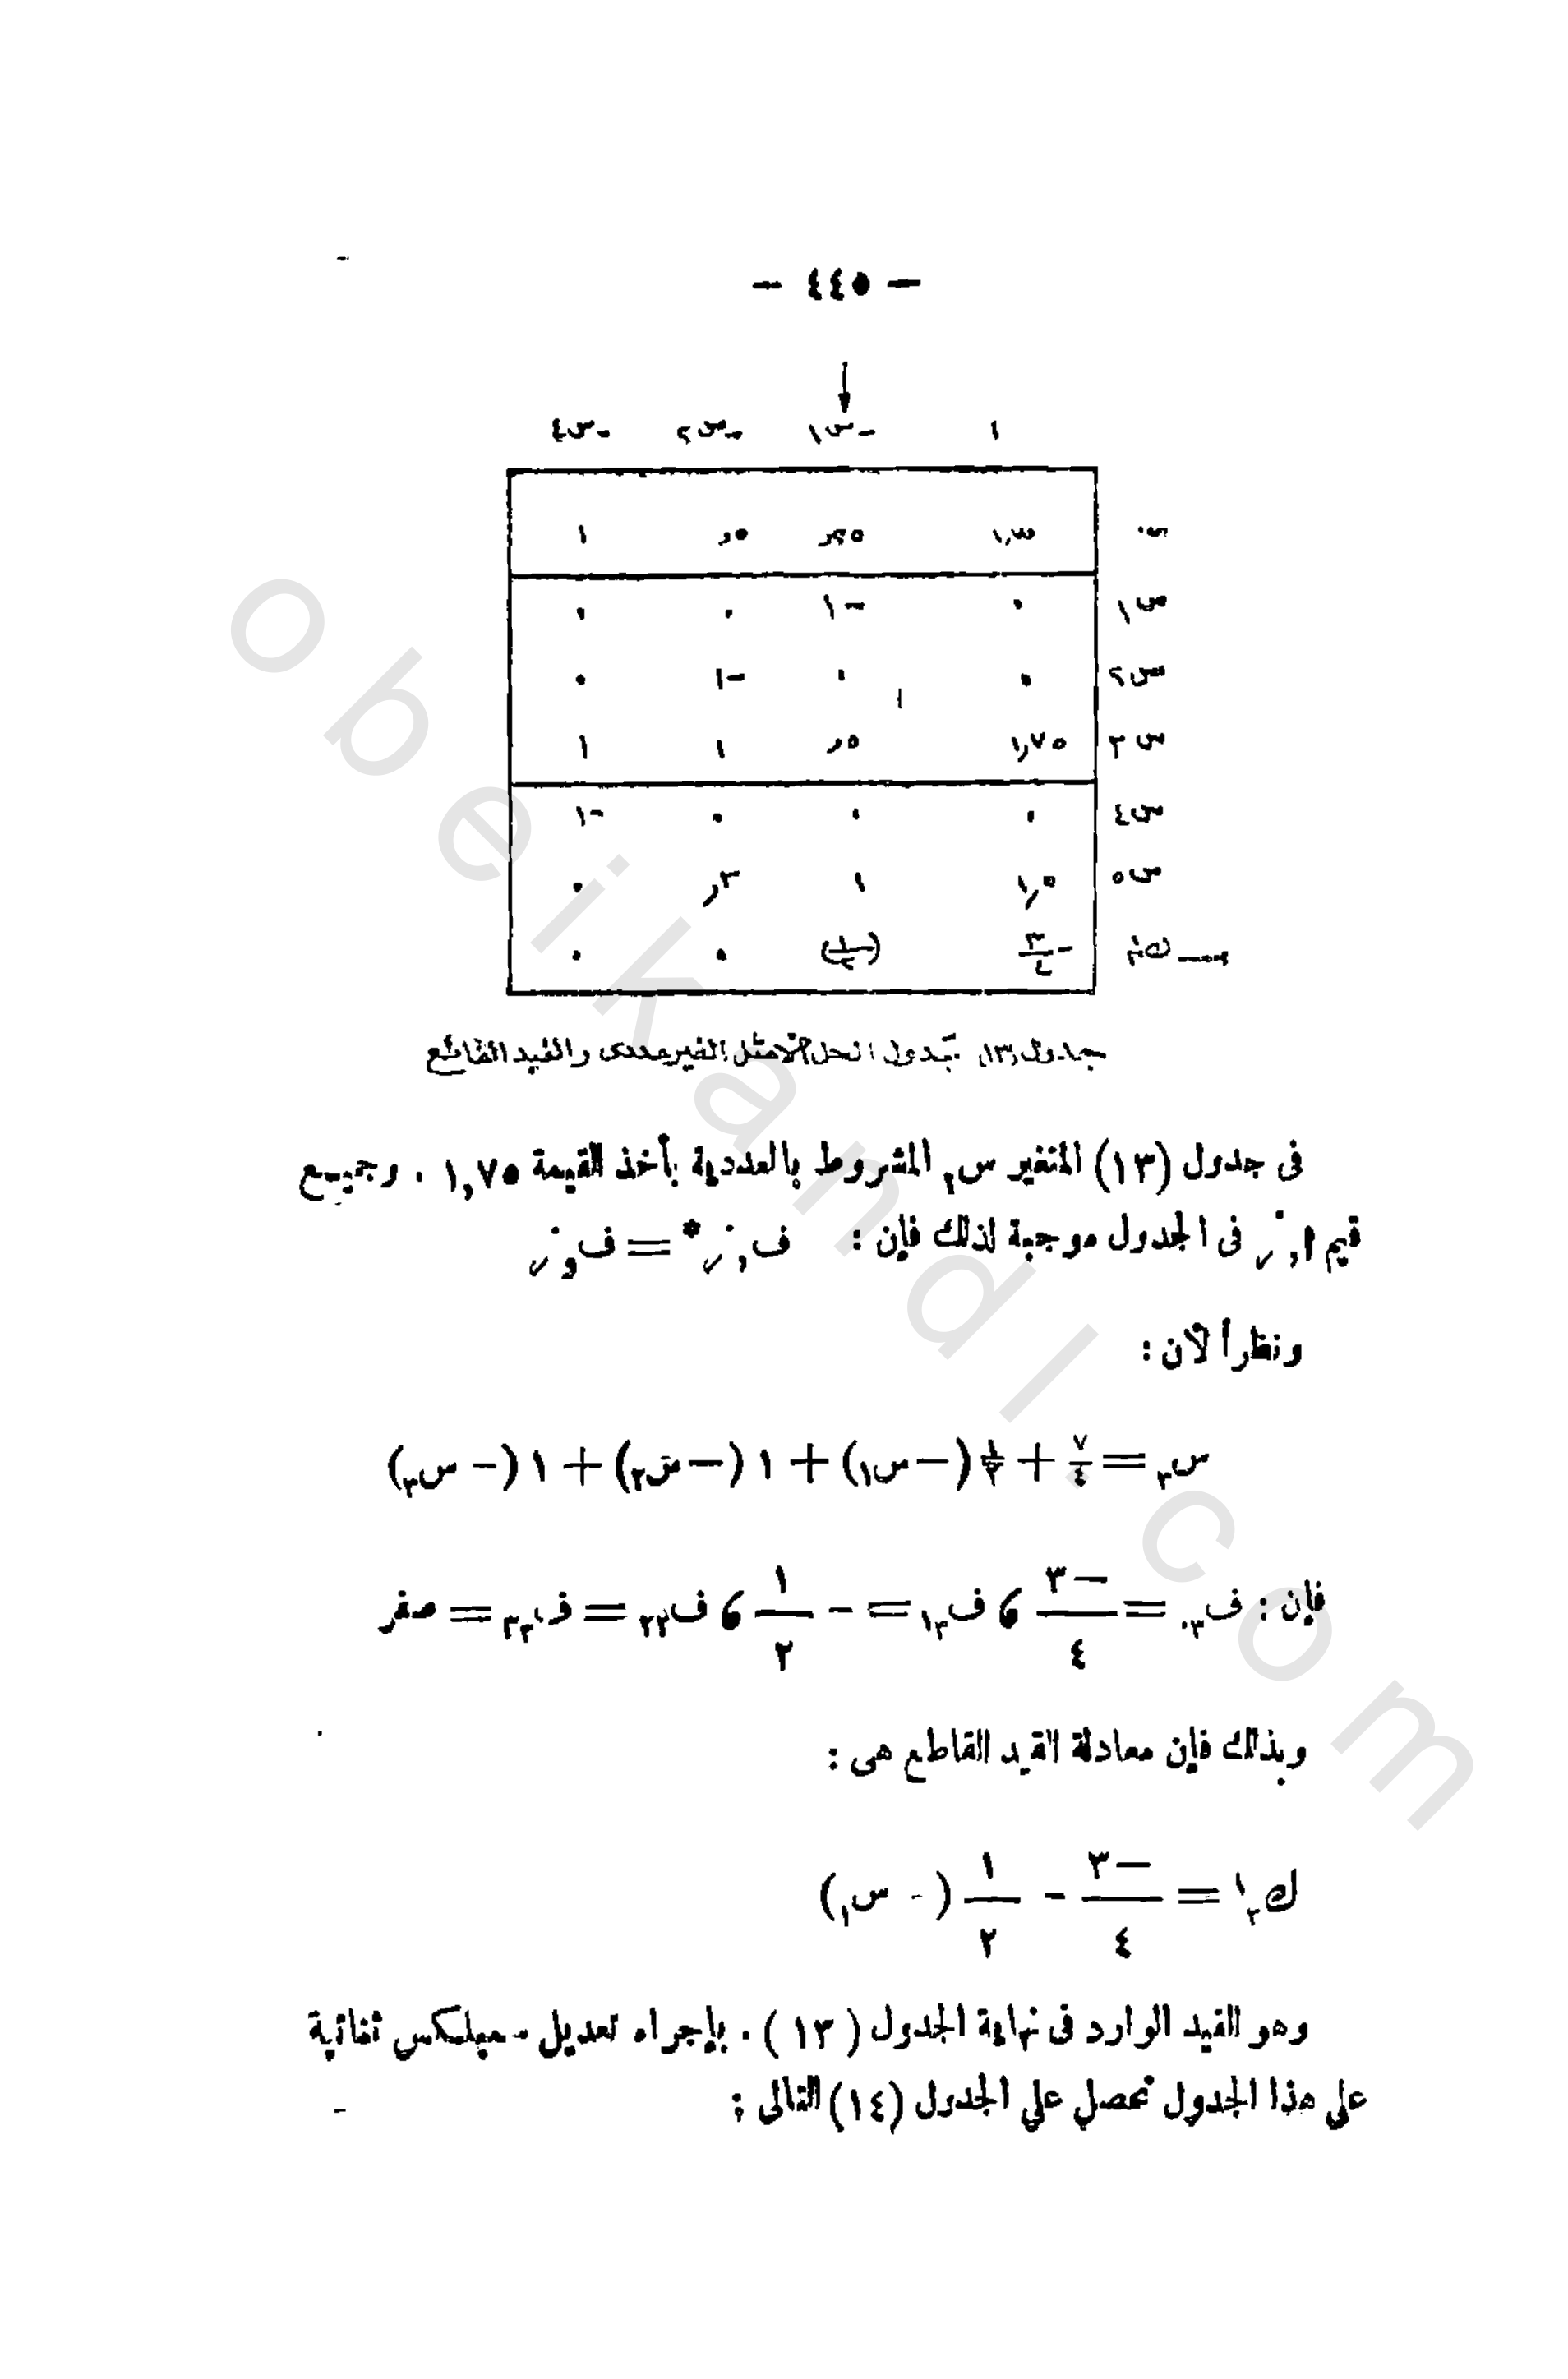 — ٤٤٥ —
١ -س١ -س٢ -س٤
س٠ ١,٣ ,٢٥ ,٥ ١
س١ ٠ -١ ٠ ٠
س٢ ٠ ٠ -١ ٠
س٣ ١,٧٥ ,٥ ١ ١
س٤ ٠ ٠ ٠ -١
س٥ ١,٥ ١ ,٣ ٠
-٣/٤ (-١/٢) ٠ ٠
جدول (١٣) جدول الحل الأمثل الغير عددى والقيد القاطع
فى جدول (١٣) المتغير س٣ المشروط بالعددية يأخذ القيمة ١,٧٥ . وجميع
قيم فى الجدول موجبة لذلك فإن :
ونظراً لأن :
س٣ = ٧/٤ + ١/٢ (- س١) + ١ (- س٢) + ١ (- س٣)
فإن : ف٣٠ = -٣/٤ ، ف٣١ = - ١/٢ ، ف٢٢ = ف٣٣ = صفر
وبذلك فإن معادلة القيد القاطع هى :
ك١٣ = -٣/٤ - ١/٢ (- س١)
وهو القيد الوارد فى نهاية الجدول ( ١٣ ) . بإجراء تعديل سمبلكس ثنائية
على هذا الجدول نحصل على الجدول (١٤) التالى :
obeikandl.com